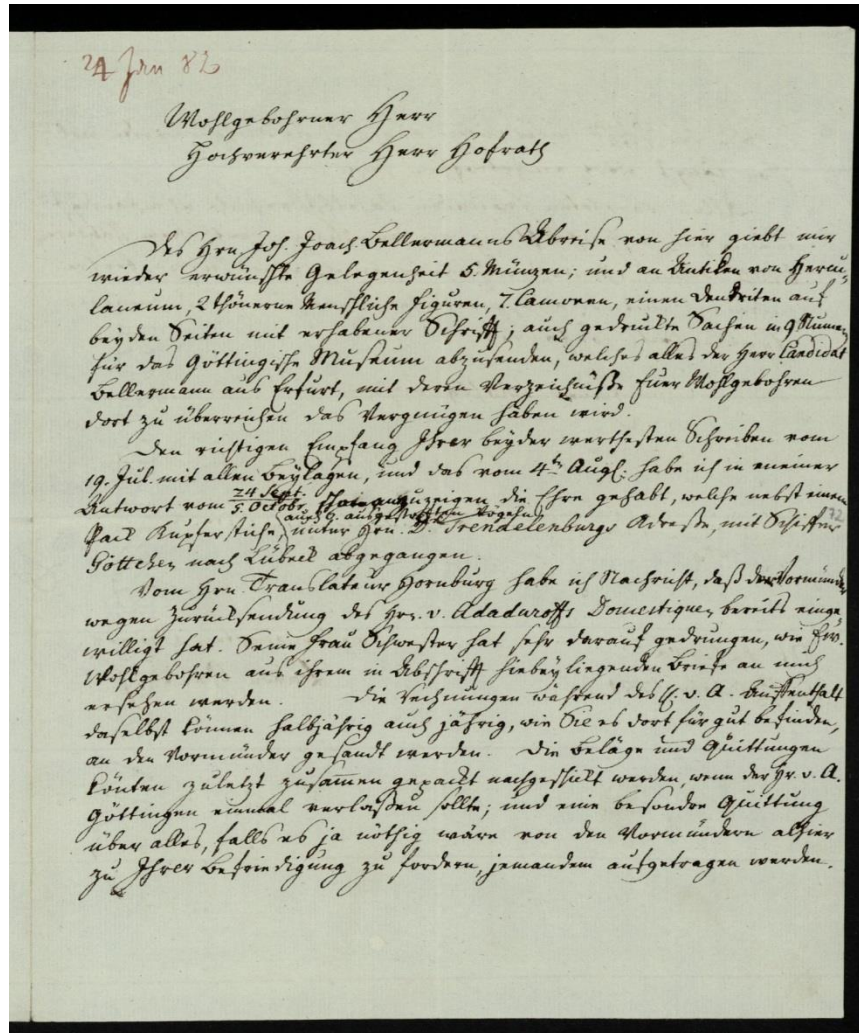 24 Jan 82
Wohlgebohrner Herr
Hochverehrter Herr Hofrath
Des Hrn Joh. Joach Bellermanns Abreise von hier giebt mir
wieder erwünschte Gelegenheit 5. Münzen; und an Antiken von Hercu-
laneum, 2 thönerne Menschliche Figuren, 7. Camoeen, einen Dendriten auf
beyden Seiten mit erhabener Schrifft; auch gedruckte Sachen in 9 Numern
für das Göttingische Museum abzusenden, welches alles der Herr Candidat
Bellermann aus Erfurt, mit deren Verzeichnüße Euer Wohlgebohren
dort zu überreichen das Vergnügen haben wird.
Den richtigen Empfang Ihrer beyder werthesten Schreiben vom
19. Jul. mit allen Beylagen, und das vom 4ten Augs. habe ich in meiner
Antwort vom 24 Sept. / 5. Octobr. anzuzeigen die Ehre gehabt, welche nebst einem
auch 9. ausgestopften Vögeln
72
Pack Kupferstiche, unter Hrn. Dr. Trendelenburgs Adreße, mit Schiffer
Göttchen nach Lübeck abgegangen.
Vom Hrn. Translateur Hornburg habe ich Nachricht, daß der Vormünder
wegen Zurücksendung des Hrn. v. Adaduroffs Domestiquen bereits einge
williget hat. Seine Frau Schwester hat sehr darauf gedrungen, wie Ew.
Wohlgebohren aus ihrem in Abschrifft hiebey liegenden Briefe an mich
ersehen werden. Die Rechnungen während des H. v. A. Auffenthalt
daselbst können halbjährig auch jährig, wie Sie es dort für gut befinden,
an den Vormünder gesandt werden. Die Beläge und Quittungen
könten zuletzt zusammen gepackt nachgeschickt werden, wenn der Hr. v. A.
Göttingen einmal verlaßen sollte; und eine besondre Quittung
über alles, falls es ja nöthig wäre von den Vormündern alhier
zu Ihrer Befriedigung zu fordern, jemandem aufgetragen werden.